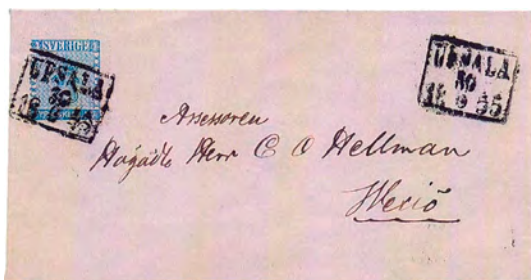 SVERIGE
UPSALA
30
UPSALA
30
18 9 55
Assessoren
Högädle Herr C O Hellman
Wexiö